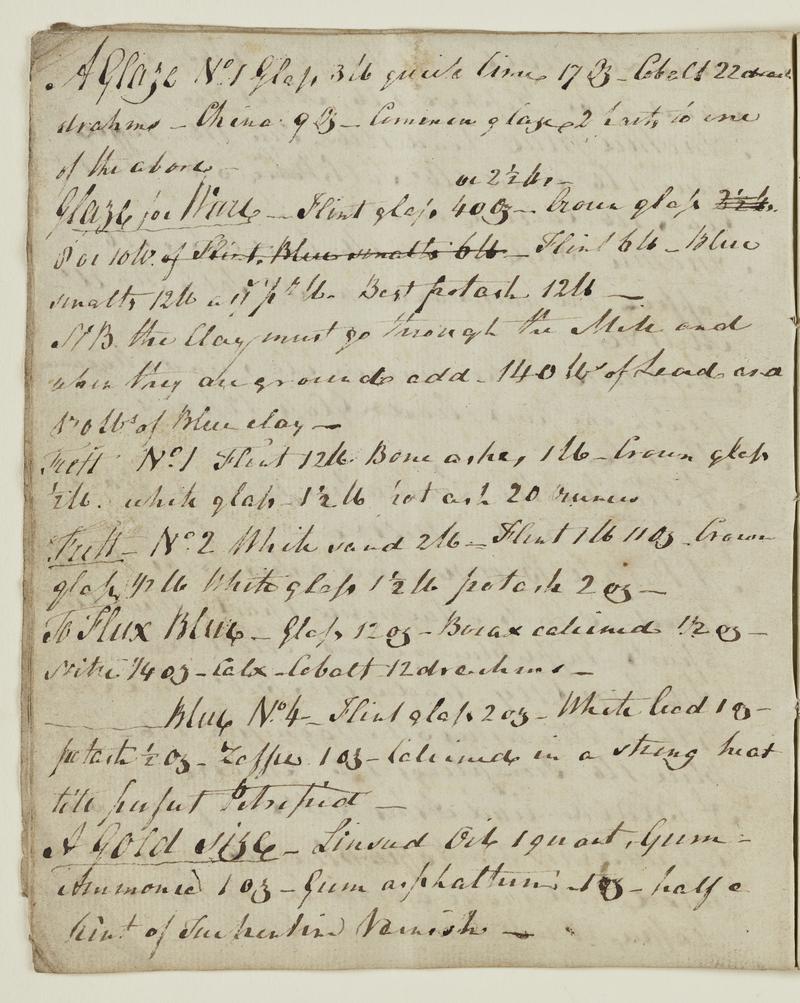 A Glaze No. 1 Glass 3 lb quick lime 17 Oz - Cobalt 22
drahms - China 9 Oz - Common glaze 2 parts to one
of the above -
or 2½ lbs -
Glaze for Ware - Flint glass 40 oz - Crown glass 2½ lb.
8 or 10 lb. of Flint. Blue smalts 6 lb - Flint 6 lb - Blue
smalts 12 lb a pr lb. Best potash 12 lb -
NB. the Clay must go through the Mill and
when they are grounde add - 140 lbs of Lead and
lbs of Blue clay -
Frett No. 1 Flint 12 lb Bone ashes 1 lb - Crown glass
½ lb. white glass - 1½ lb potash 20 ounces
Frett - No. 2 White sand 2 lb - Flint 1 lb 11 oz - Crown
glass ½ lb White glass 1½ lb potash 2 oz -
To Flux Blue - Glass 12 oz - Borax calcined 1½ oz -
nitre ¼ oz - Calx - Cobalt 12 drachms -
Blue No. 4 - Flint glass 2 oz - White lead 1 oz -
potash ½ oz - Zaffre 1 oz - Calcined in a strong heat
till perfect Petrified -
A Gold size - Linseed Oil 1 quart, Gum =
Ammonic 1 oz - Gum asphaltum - 1 oz - half a
pint of Turpentine Varnish -